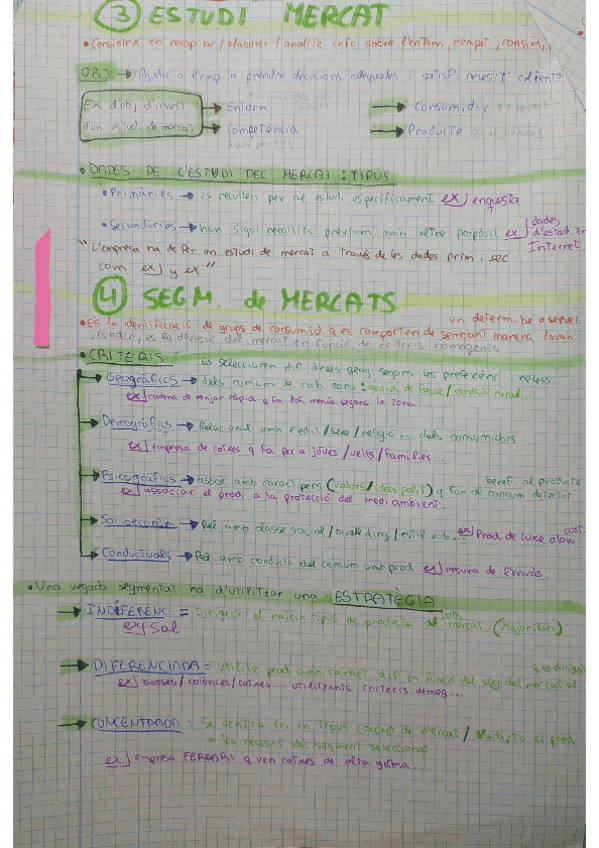 3 ESTUDI MERCAT
• Consisteix en recopilar/elaborar/analitz info sobre l'entorn, compet, consum,
OBJ → Ajudar a l'emp a prendre decisions adequades i satisf. necesit clients
Ex d'obj d'invest
d'un estudi de mercat
→ Entorn
→ Competència
→ Consumidor
→ Producte
• DADES DE L'ESTUDI DEL MERCAT: TIPUS
• Primàries → es recullen per al estudi específicament ex) enquesta
• Secundàries → han sigut recollits prèviam amb altre propòsit ex) dades d'estad. en Internet
"L'empresa ha de fer un estudi de mercat a través de les dades prim i sec
com ex) y ex"
4 SEGM. de MERCATS
• És la identificació de grups de consumid. q es comporten de semblant manera davan un determ. be o servei.
, és a dir, és la divisió del mercat en funció de criteris homogenis
• CRITERIS
Es seleccionen dif. àrees geog segons les preferènc i necess
Geogràfics → dels comium de cada zona:
ex) cadena de menjar ràpid q fa dif menús segons la zona
Demogràfics → Relacionat amb l'edat/sexe/religió... dels consumidors
ex) empresa de cotxes q fa per a joves/vells/families...
Psicogràfics → associ amb caract pers (valors/idees polít) q fan de consum
benef. al producte
ex) associar el prod a la protecció del medi ambient.
Socioeconòm → Rel amb classe social/nivell diners/estil vida... ex) Prod de luxe o low cost
Conductuals → Rel amb conducta del consum amb prod ex) mesura de l'envàs.
• Una vegada segmentat ha d'utilitzar una ESTRATEGIA
→ INDIFERENC = Dirigeix el mateix tipus de producte al mercat. (Majoritari)
tots
ex) Sal
→ DIFERENCIADA = Utilitz prod amb caract. dif en funció del seg del mercat al
q es dirigeix
ex) bosses/colònies/cotxes... utilitzants criteris demog...
→ CONCENTRADA: Se centra en un tipus concret de mercat / s'adapta el prod
a les necesit del segment seleccionat
ex) empresa FERRARI q ven cotxes de alta gama.